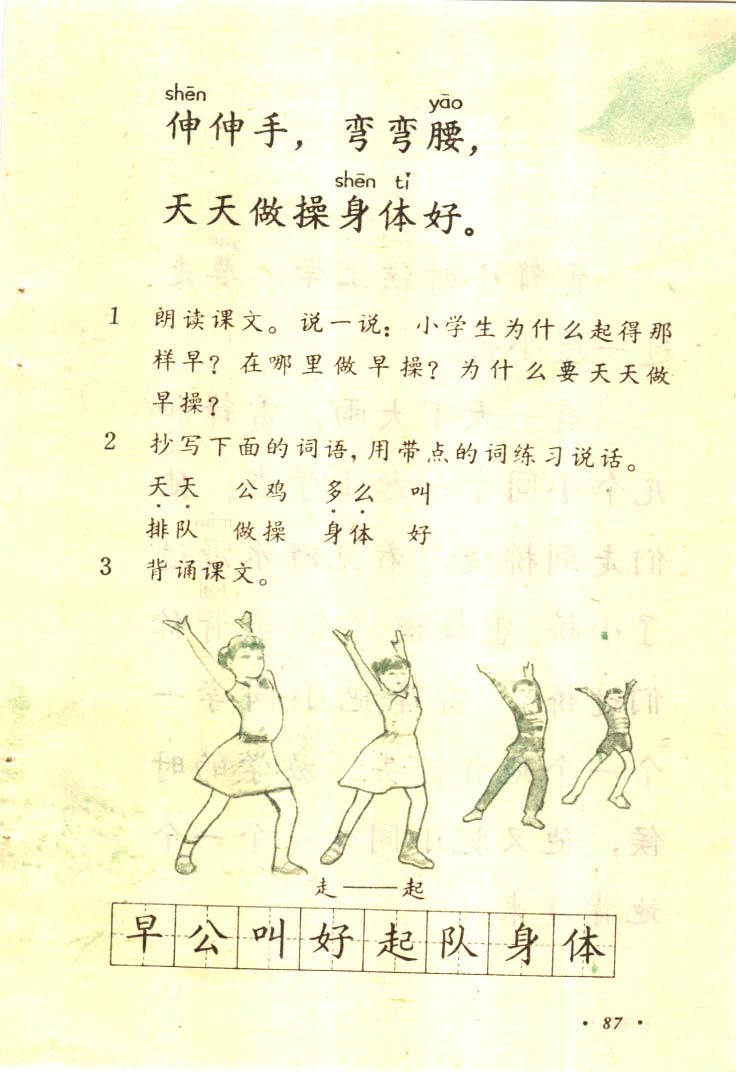 shēn yāo
伸伸手，弯弯腰，
shēn tǐ
天天做操身体好。
1 朗读课文。说一说：小学生为什么起得那
样早？在哪里做早操？为什么要天天做
早操？
2 抄写下面的词语，用带点的词练习说话。
天天 公鸡 多么 叫
排队 做操 身体 好
3 背诵课文。
走——起
早公叫好起队身体
·87·